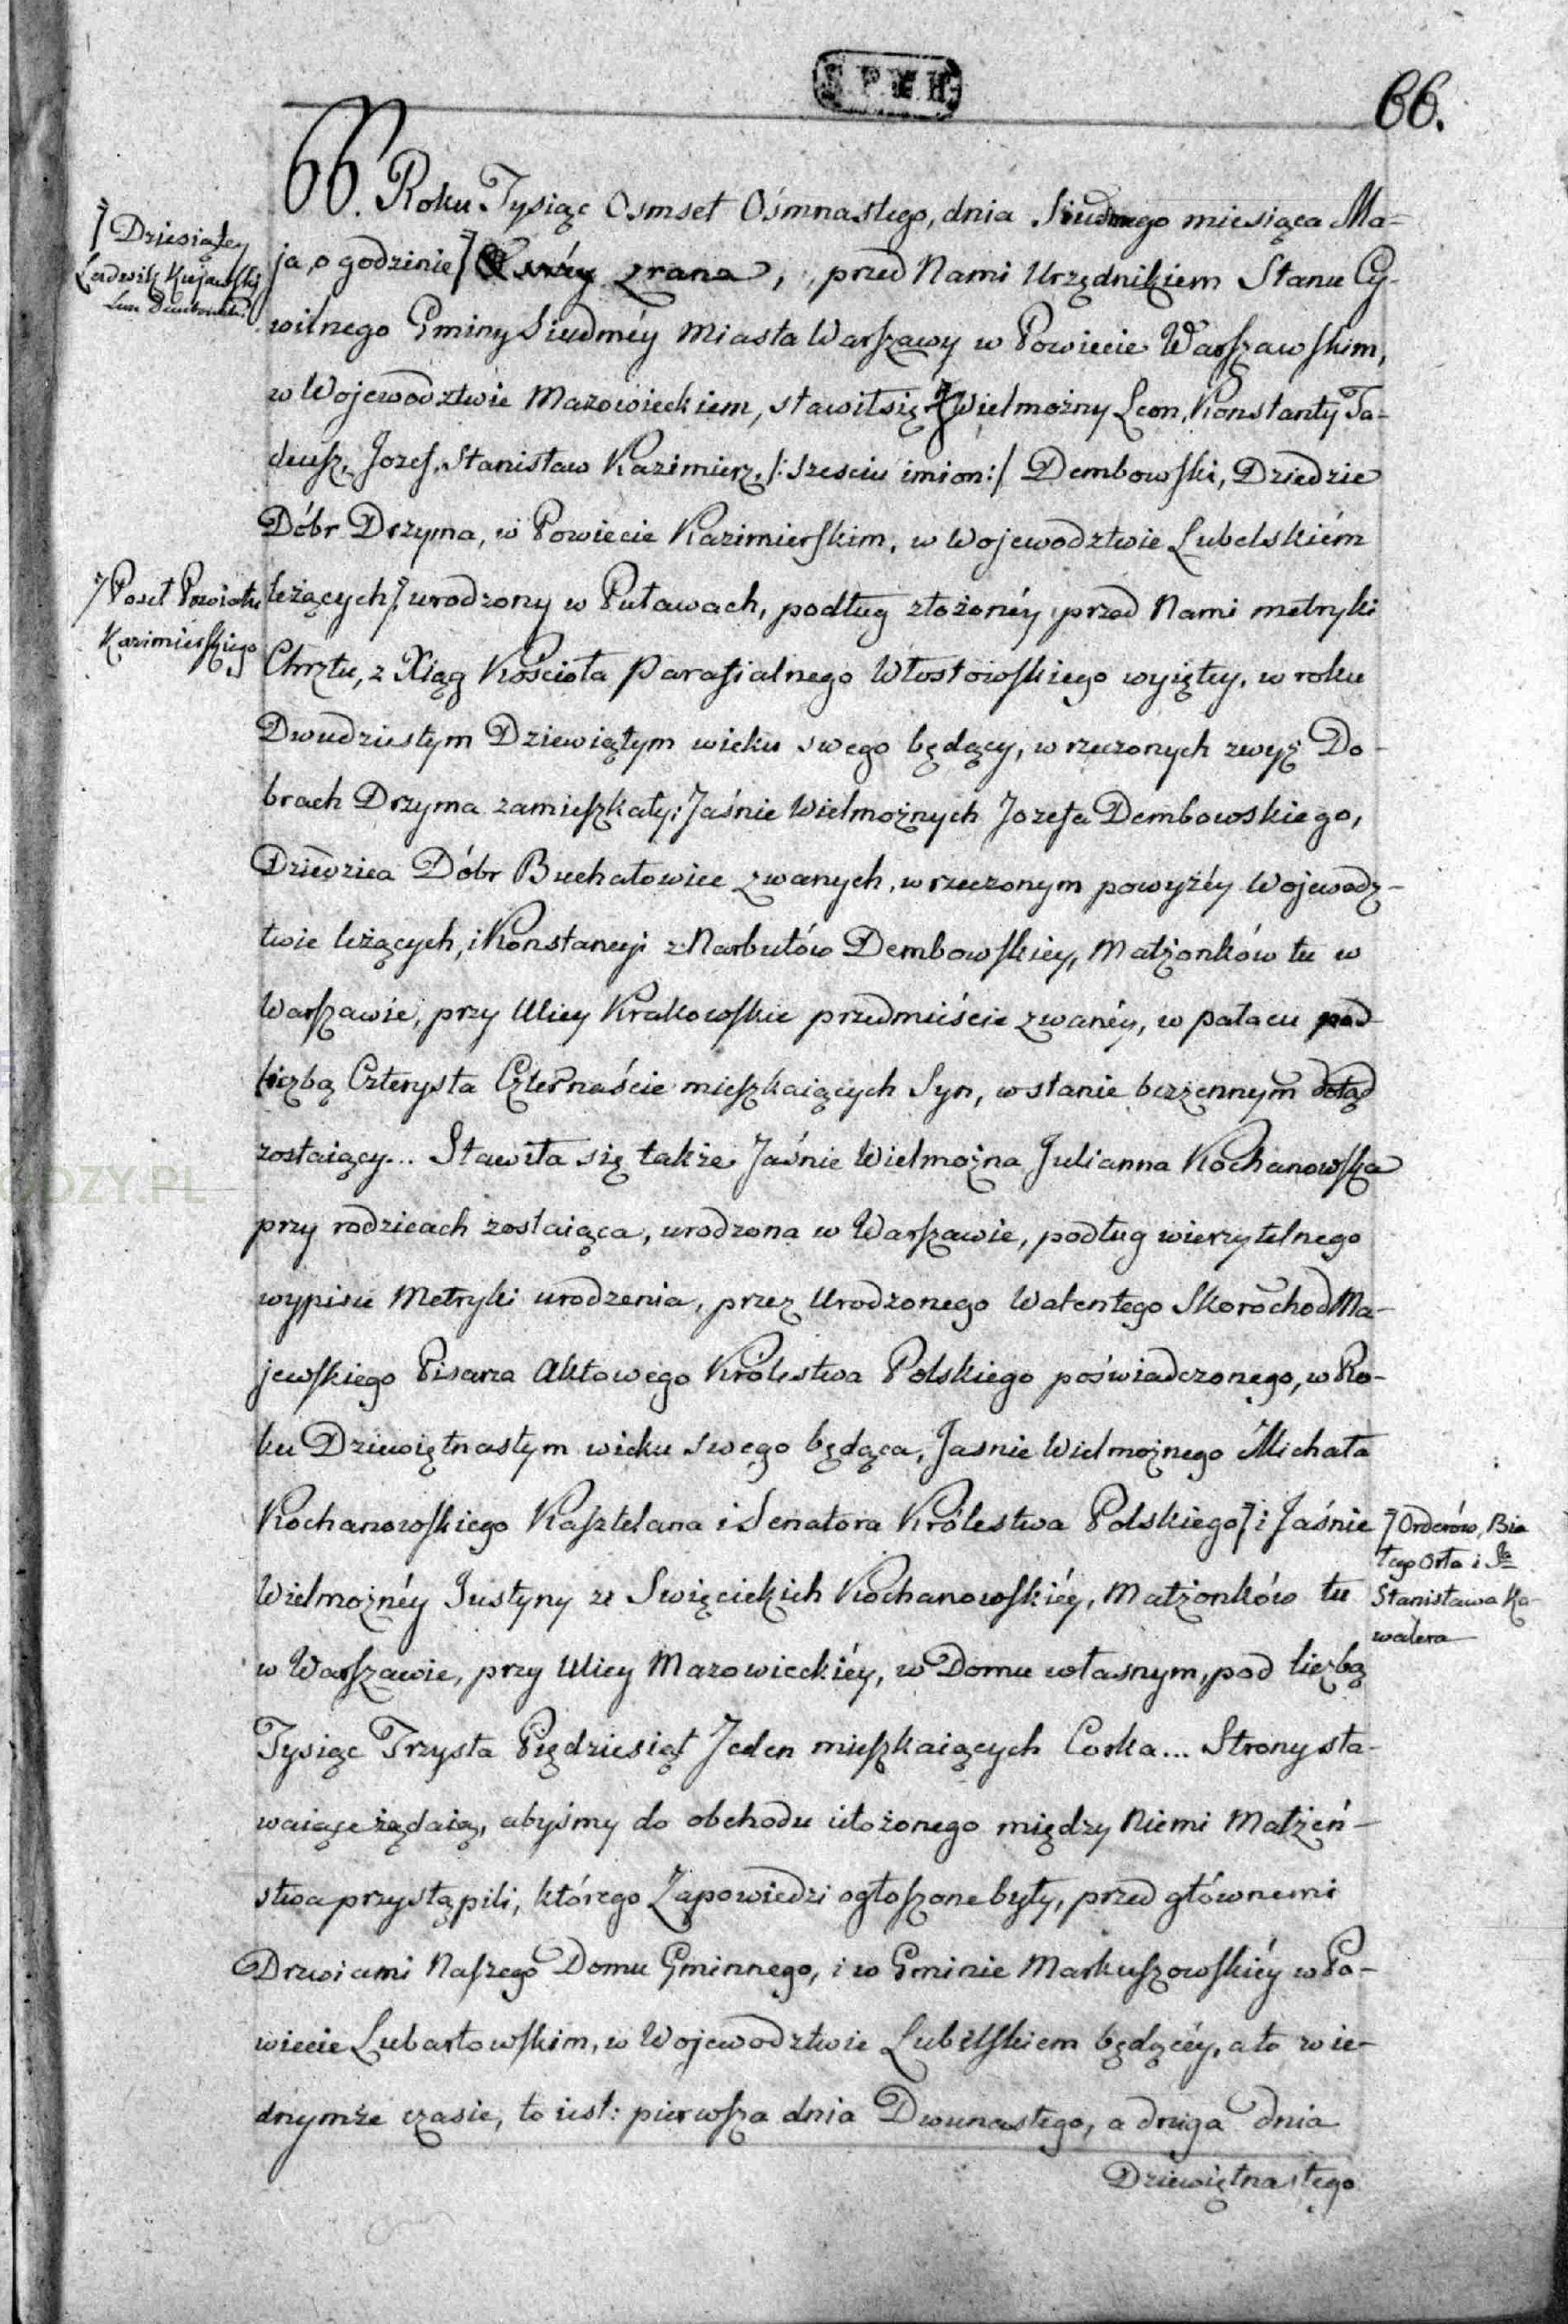 66.
66. Roku Tysiąc Osmset Ośmnastego, dnia Siudmego miesiąca Ma-
ja, o godzinie zrana, przed Nami Urzędnikiem Stanu Cy-
wilnego Gminy Siudméy Miasta Warszawy w Powiecie Warszawskim,
w Wojewodztwie Mazowieckiem, stawił się Wielmożny Leon, Konstanty Ta-
deusz, Jozef, Stanisław Kazimierz, /: szesciu imion :/ Dembowski, Dziedzic
Dóbr Drzyma, w Powiecie Kazimierskim, w Wojewodztwie Lubelskiém
leżących, urodzony w Puławach, podług złożonéy przed Nami metryki
Chrztu, z Xiąg Kościoła Parafialnego Włostowskiego wyiętey, w roku
Dwudziestym Dziewiątym wieku swego będący, w rzeczonych zwyż Do-
brach Drzyma zamieszkały; Jaśnie Wielmożnych Jozefa Dembowskiego,
Dziedzica Dóbr Buchałowice zwanych, w rzeczonym powyżéy Wojewodz-
twie leżących, i Konstancyi z Narbutów Dembowskiey, Małżonków tu w
Warszawie, przy Ulicy Krakowskie przedmieście zwanéy, w pałacu pod
liczbą Czterysta Czternaście mieszkaiących Syn, w stanie bezżennym dotąd
zostaiący... Stawiła się także Jaśnie Wielmożna Julianna Kochanowska
przy rodzicach zostaiąca, urodzona w Warszawie, podług wierzytelnego
wypisu Metryki urodzenia, przez Urodzonego Walentego Skorochod Ma-
jewskiego Pisarza Aktowego Królestwa Polskiego poświadczonego, w Ro-
ku Dziewiętnastym wieku swego będąca, Jasnie Wielmożnego Michała
Kochanowskiego Kasztelana i Senatora Królestwa Polskiego i Jaśnie
Wielmożnéy Justyny ze Swięcickich Kochanowskiéy, Małżonków tu
w Warszawie, przy Ulicy Mazowieckiéy, w Domu własnym, pod liczbą
Tysiąc Trzysta Pięędziesiąt Jeden mieszkaiących Corka... Strony sta-
waiące żądaią, abyśmy do obchodu ułożonego między Niemi Małżeń-
stwa przystąpili, którego Zapowiedzi ogłoszone były, przed głównemi
Drzwiami Naszego Domu Gminnego, i w Gminie Markuszowskiéy w Po-
wiecie Lubartowskim, w Wojewodztwie Lubelskiem będącéy, a to w ie-
dnymże czasie, to iest: pierwsza dnia Dwunastego, a druga dnia
Dziewiętnastego
Dziesiątey
Ludwik Kujawski
Leon Dembowski
Poseł Powiatu
Kazimierskiego
Orderów, Bia
łego Orła i Sgo
Stanisława Ka-
walera
ODZY.PL